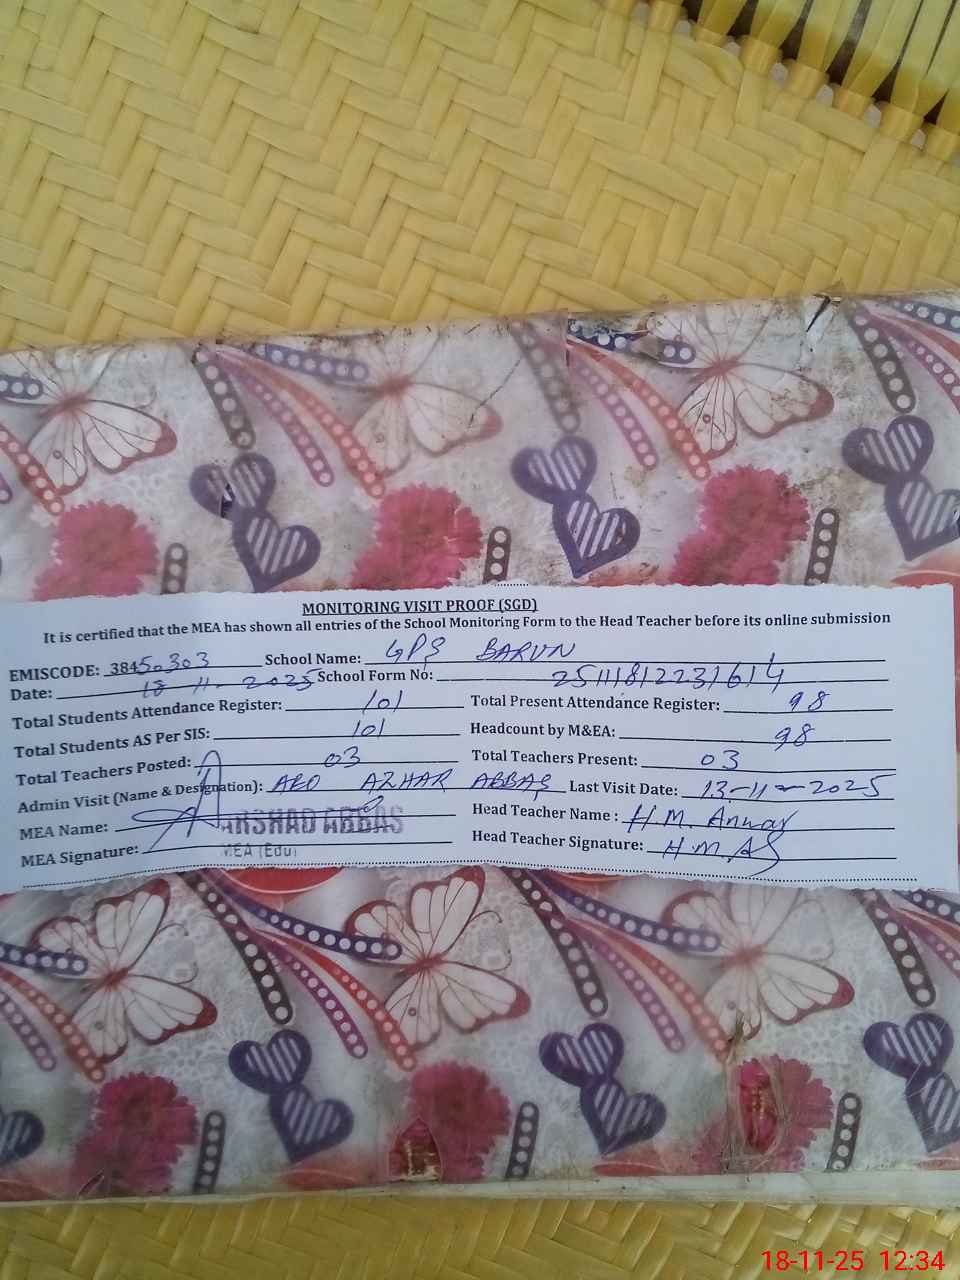 MONITORING VISIT PROOF (SGD)
It is certified that the MEA has shown all entries of the School Monitoring Form to the Head Teacher before its online submission
EMISCODE: 38450303 School Name: GPS BARUN
Date: 18-11-2025 School Form No: 25111812231614
Total Students Attendance Register: 101 Total Present Attendance Register: 98
Total Students AS Per SIS: 101 Headcount by M&EA: 98
Total Teachers Posted: 03 Total Teachers Present: 03
Admin Visit (Name & Designation): AEO AZHAR ABBAS Last Visit Date: 13-11-2025
MEA Name: ARSHAD ABBAS Head Teacher Name : H M. Anwar
MEA Signature: MEA (Edu) Head Teacher Signature: H.M.
18-11-25 12:34